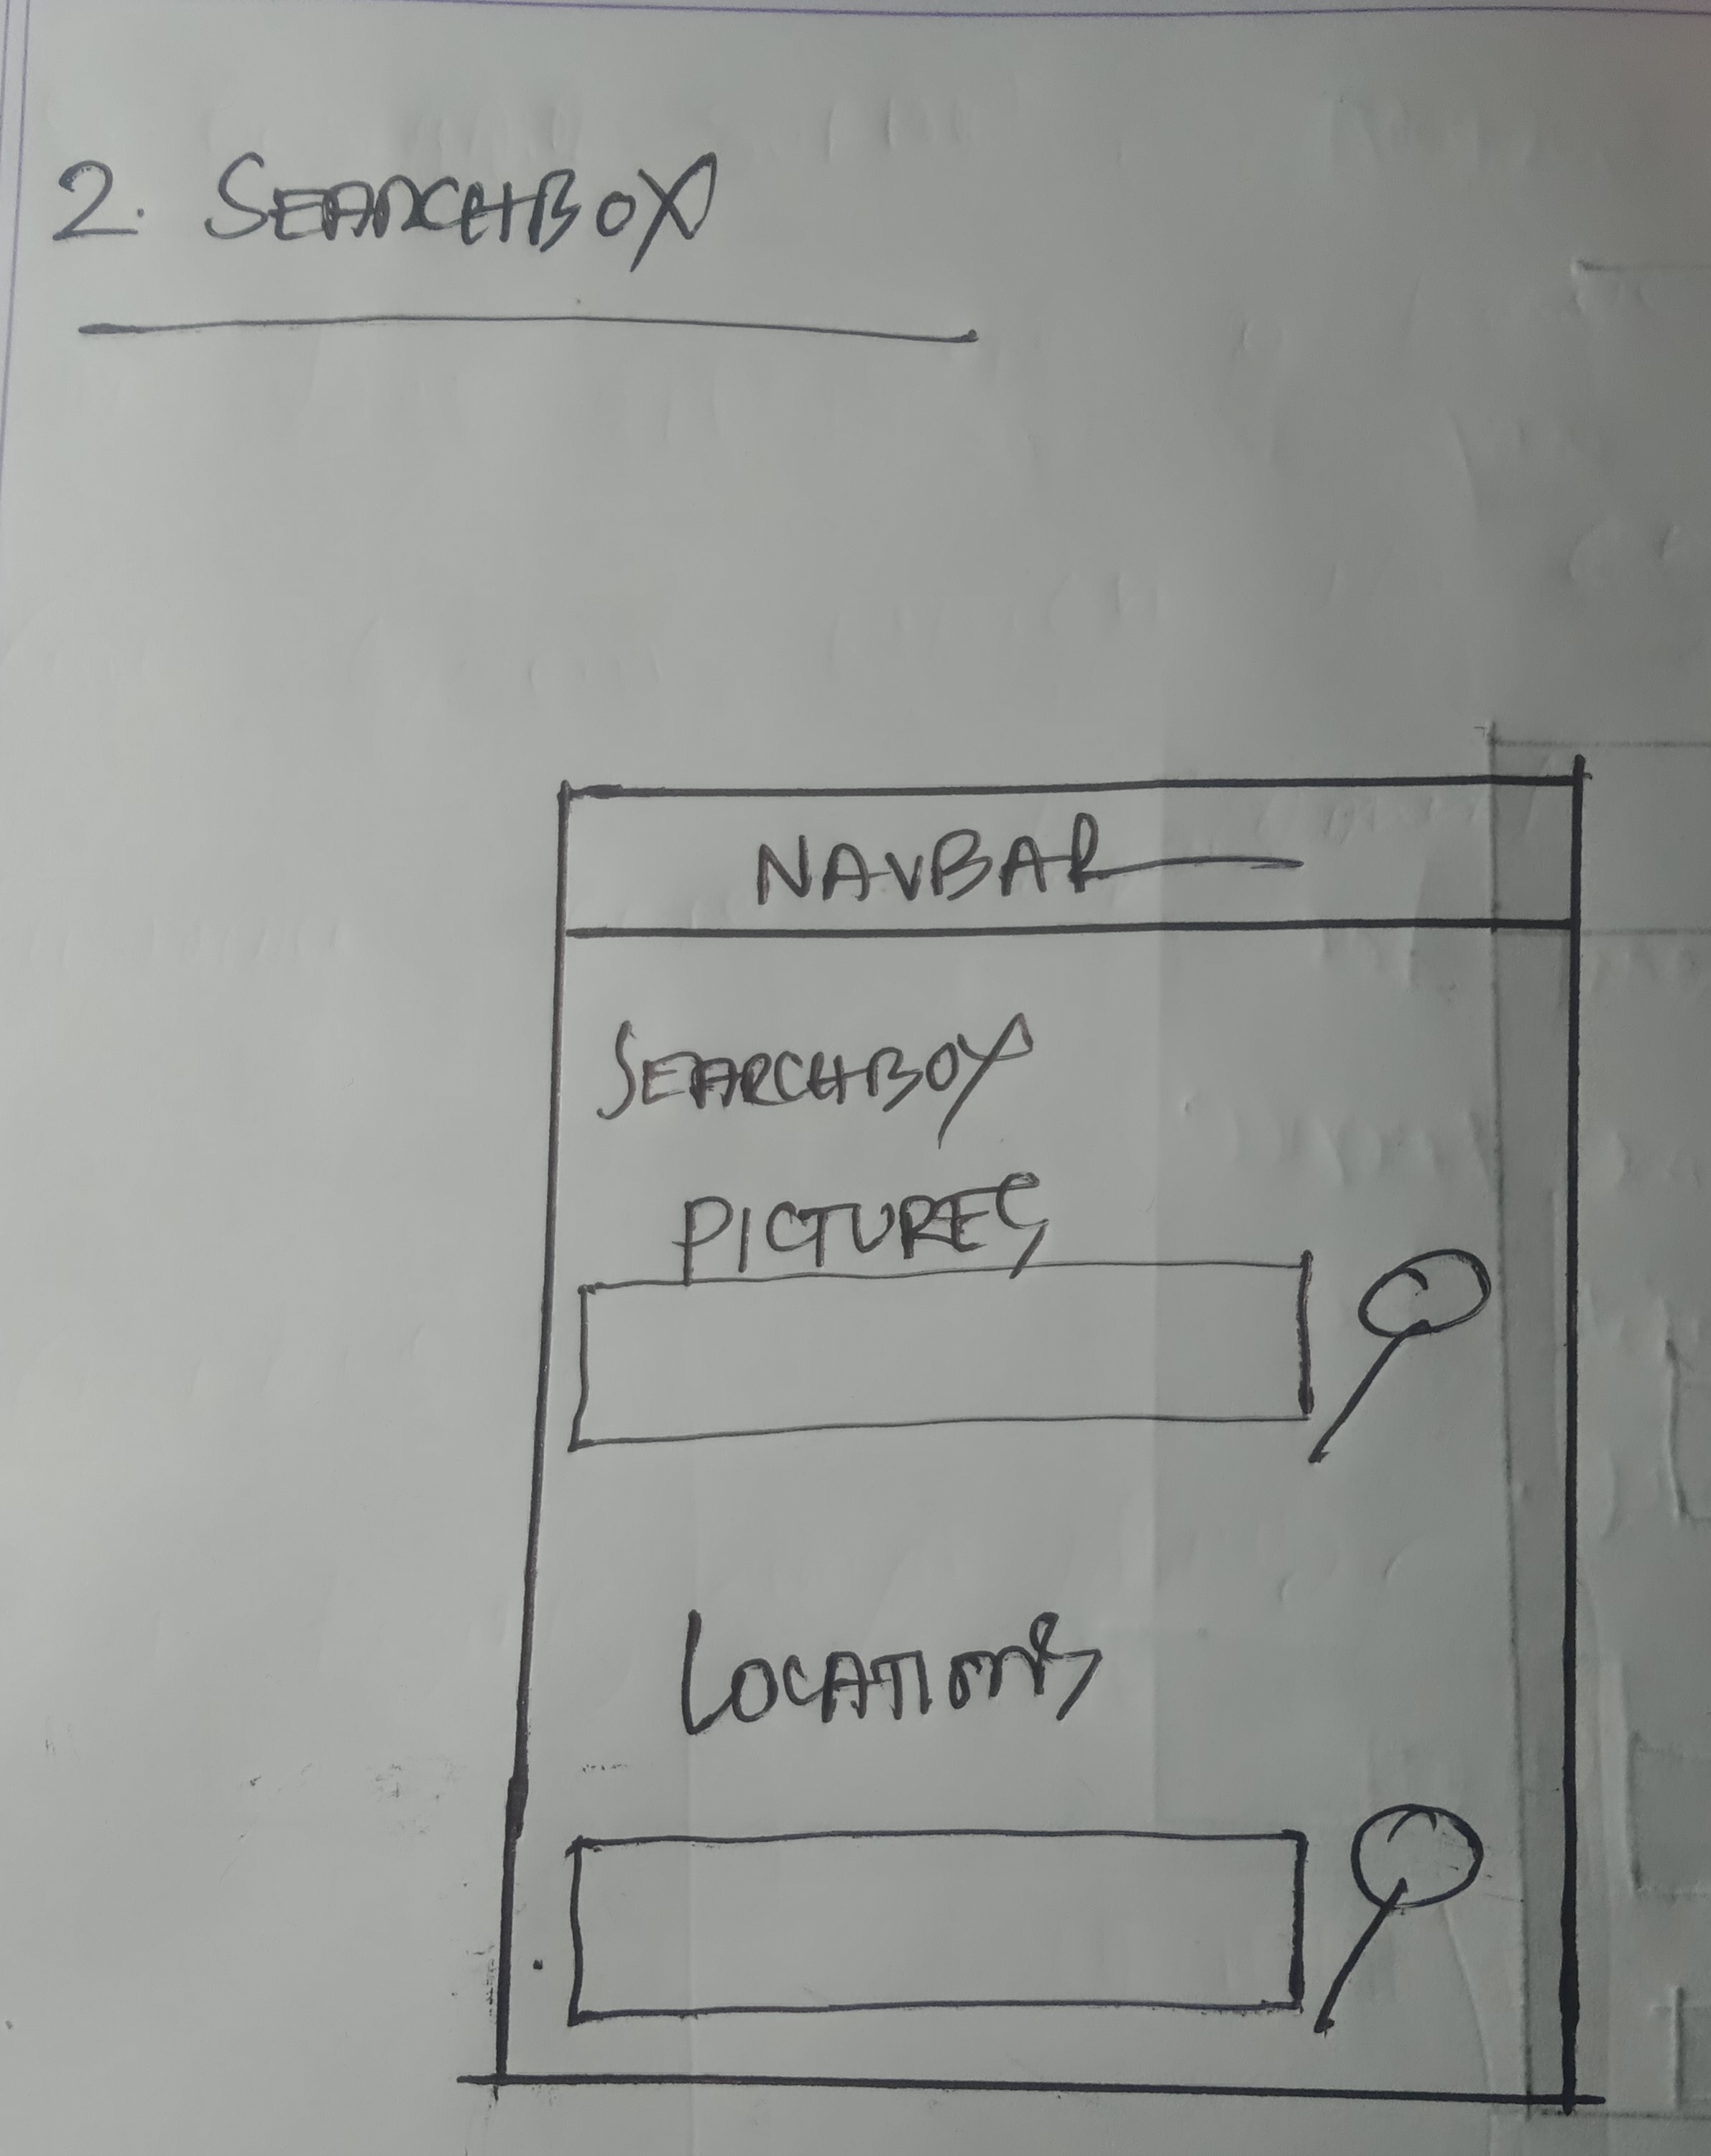 2. SEARCHBOX
NAVBAR
SEARCHBOX
PICTURES
LOCATIONS